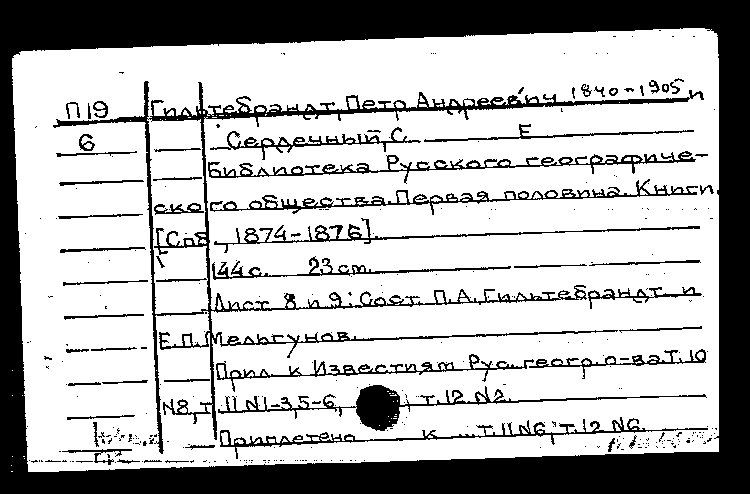 П19 Гильтебрандт, Петр Андреевич, 1840-1905 и
6 Сердечный, С. Е
Библиотека Русского географиче-
ского общества. Первая половина. Книги.
[Спб., 1874-1876].
144 с. 23 cm.
Лист 8 и 9: Сост. П.А. Гильтебрандт и
Е.П. Мельгунов.
Прил. к Известиям Рус. геогр. о-ва. Т. 10
N8, т. 11 N1-3, 5-6, т. 12 N2.
Приплетено к ... т. 11 N6; т. 12 N6.